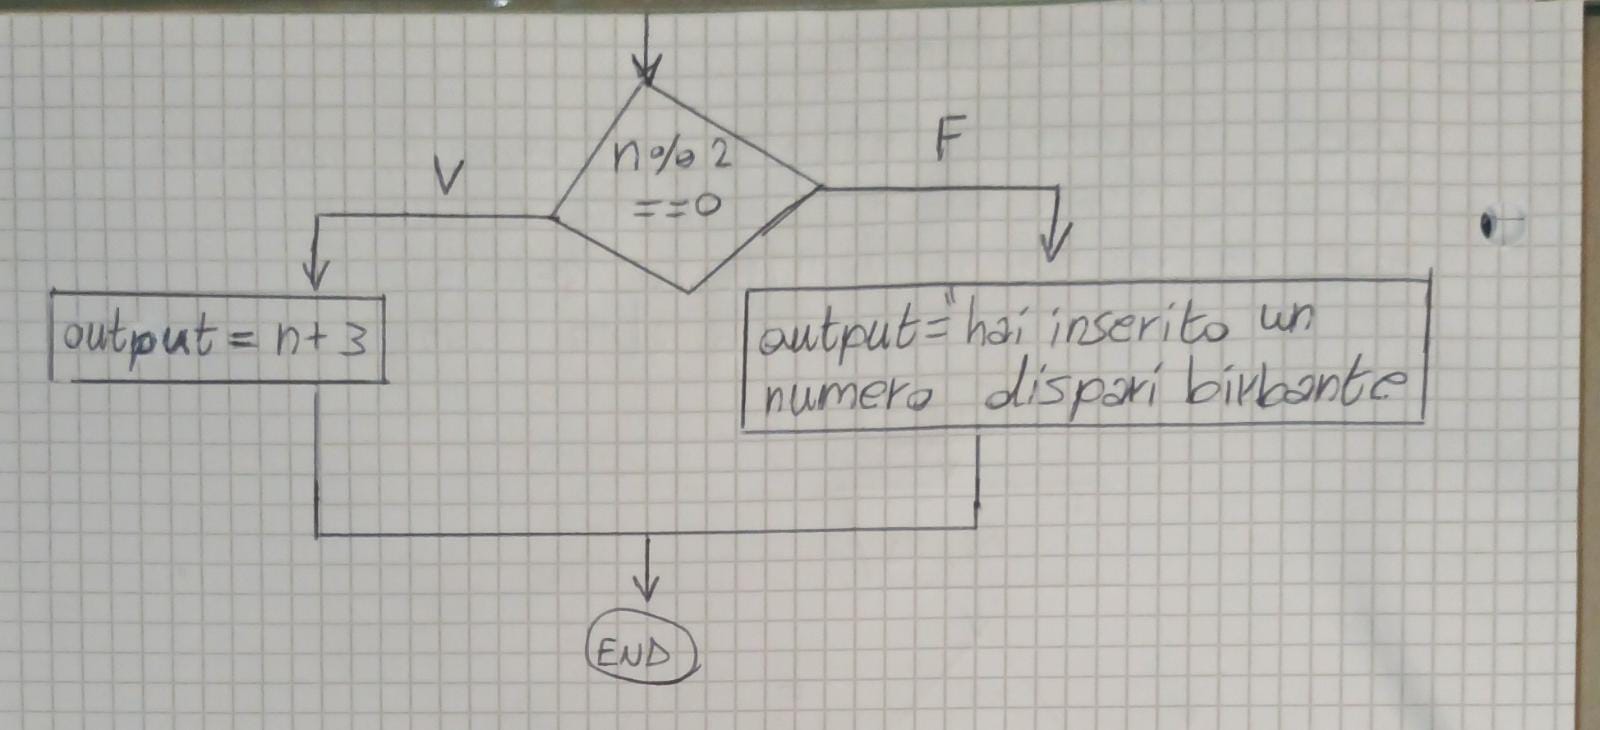 n%2
==0
V
F
output = n+3
output="hai inserito un
numero dispari birbante
END